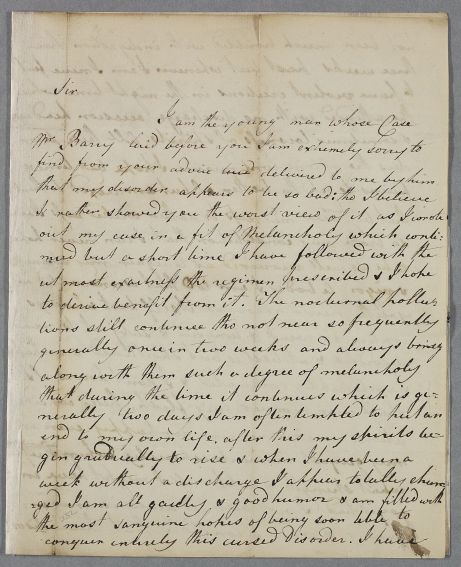 Sir
I am the young man whose Case
Mr. Barry laid before you I am extremely sorry to
find from your advice and delivered to me by him
that my disorder appears to be so bad: tho I believe
it rather showed you the worst view of it as I wrote
out my case in a fit of Melancholy which conti-
nued but a short time I have followed with the
utmost exactness the regimen prescribed & I hope
to derive benefit from it. The nocturnal pollu-
tions still continue tho not near so frequently
generally once in two weeks and always brings
along with them such a degree of melancholy
that during the time it continues which is ge-
nerally two days I am often tempted to put an
end to my own life, after this my spirits be-
gin gradually to rise & when I have been a
week without a discharge I appear totally chan-
ged I am all gaiety & good humor & am filled with
the most sanguine hopes of being soon able to
conquer entirely this cursed Disorder. I have